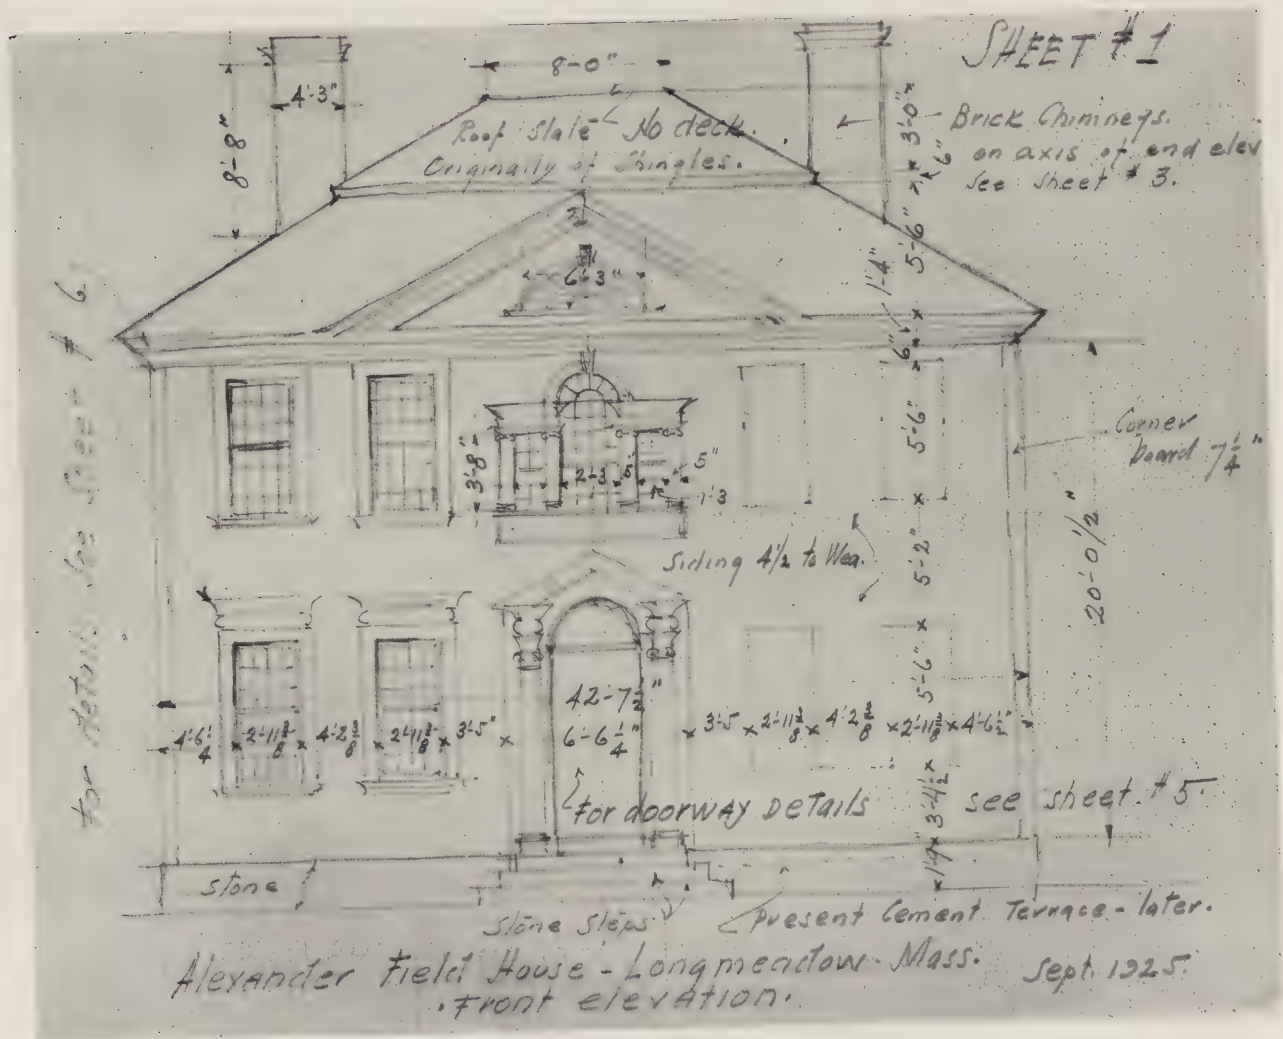 SHEET #1
8'-0"
4'-3"
8'-8"
Roof Slate No deck.
Originally of Shingles.
Brick Chimneys.
on axis of end elev
See sheet #3.
3'-0"
6"
5'-6"
1'-4"
6"
6'-3"
for details see sheet #6.
5'-6"
Corner
board 7 1/4"
3'-8"
2'-3
5
5"
1'-3
Siding 4 1/2 to Wea.
5'-2"
20'-0 1/2"
5'-6"
42'-7 1/2"
6'-6 1/4"
4'-6 1/4 2'-11 3/8 4'-2 3/8 2'-11 3/8 3'-5"
3'-5 2'-11 3/8 4'-2 3/8 2'-11 3/8 4'-6 1/2"
for doorway details see sheet #5.
3'-4 1/2
1'-9"
stone
Stone Steps
Present Cement Terrace - later.
Alexander Field House - Longmeadow - Mass. Sept. 1925.
.Front elevation.